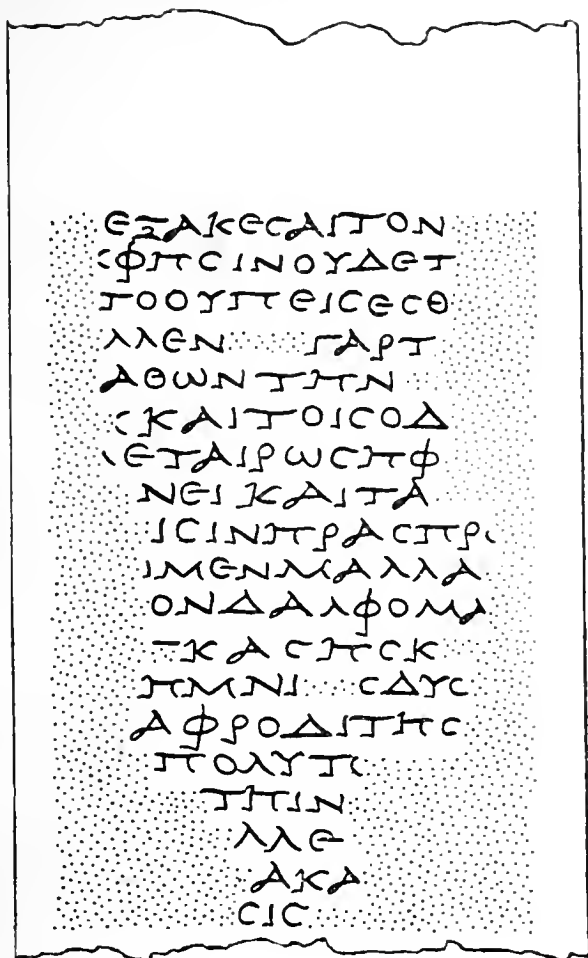 ΕΞΑΚΕϹΑΙΤΟΝ
ΦΗϹΙΝΟΥΔΕΤ
ΤΟΟΥΠΕΙϹΕϹΘ
ΛΛΕΝ ΓΑΡΤ
ΑΘΩΝΤΗΝ
ϹΚΑΙΤΟΙϹΟΔ
ΕΤΑΙΡΩϹΗΦ
ΝΕΙΚΑΙΤΑ
ΙϹΙΝΗΡΑϹΠΡ
ΙΜΕΝΜΑΛΛΑ
ΟΝΔΑΛΦΟΜΑ
ΚΑϹΗϹΚ
ΗΜΝΙ ϹΔΥϹ
ΑΦΡΟΔΙΤΗϹ
ΠΟΛΥΤ
ΤΗΙΝ
ΛΛΕ
ΑΚΑ
ϹΙϹ